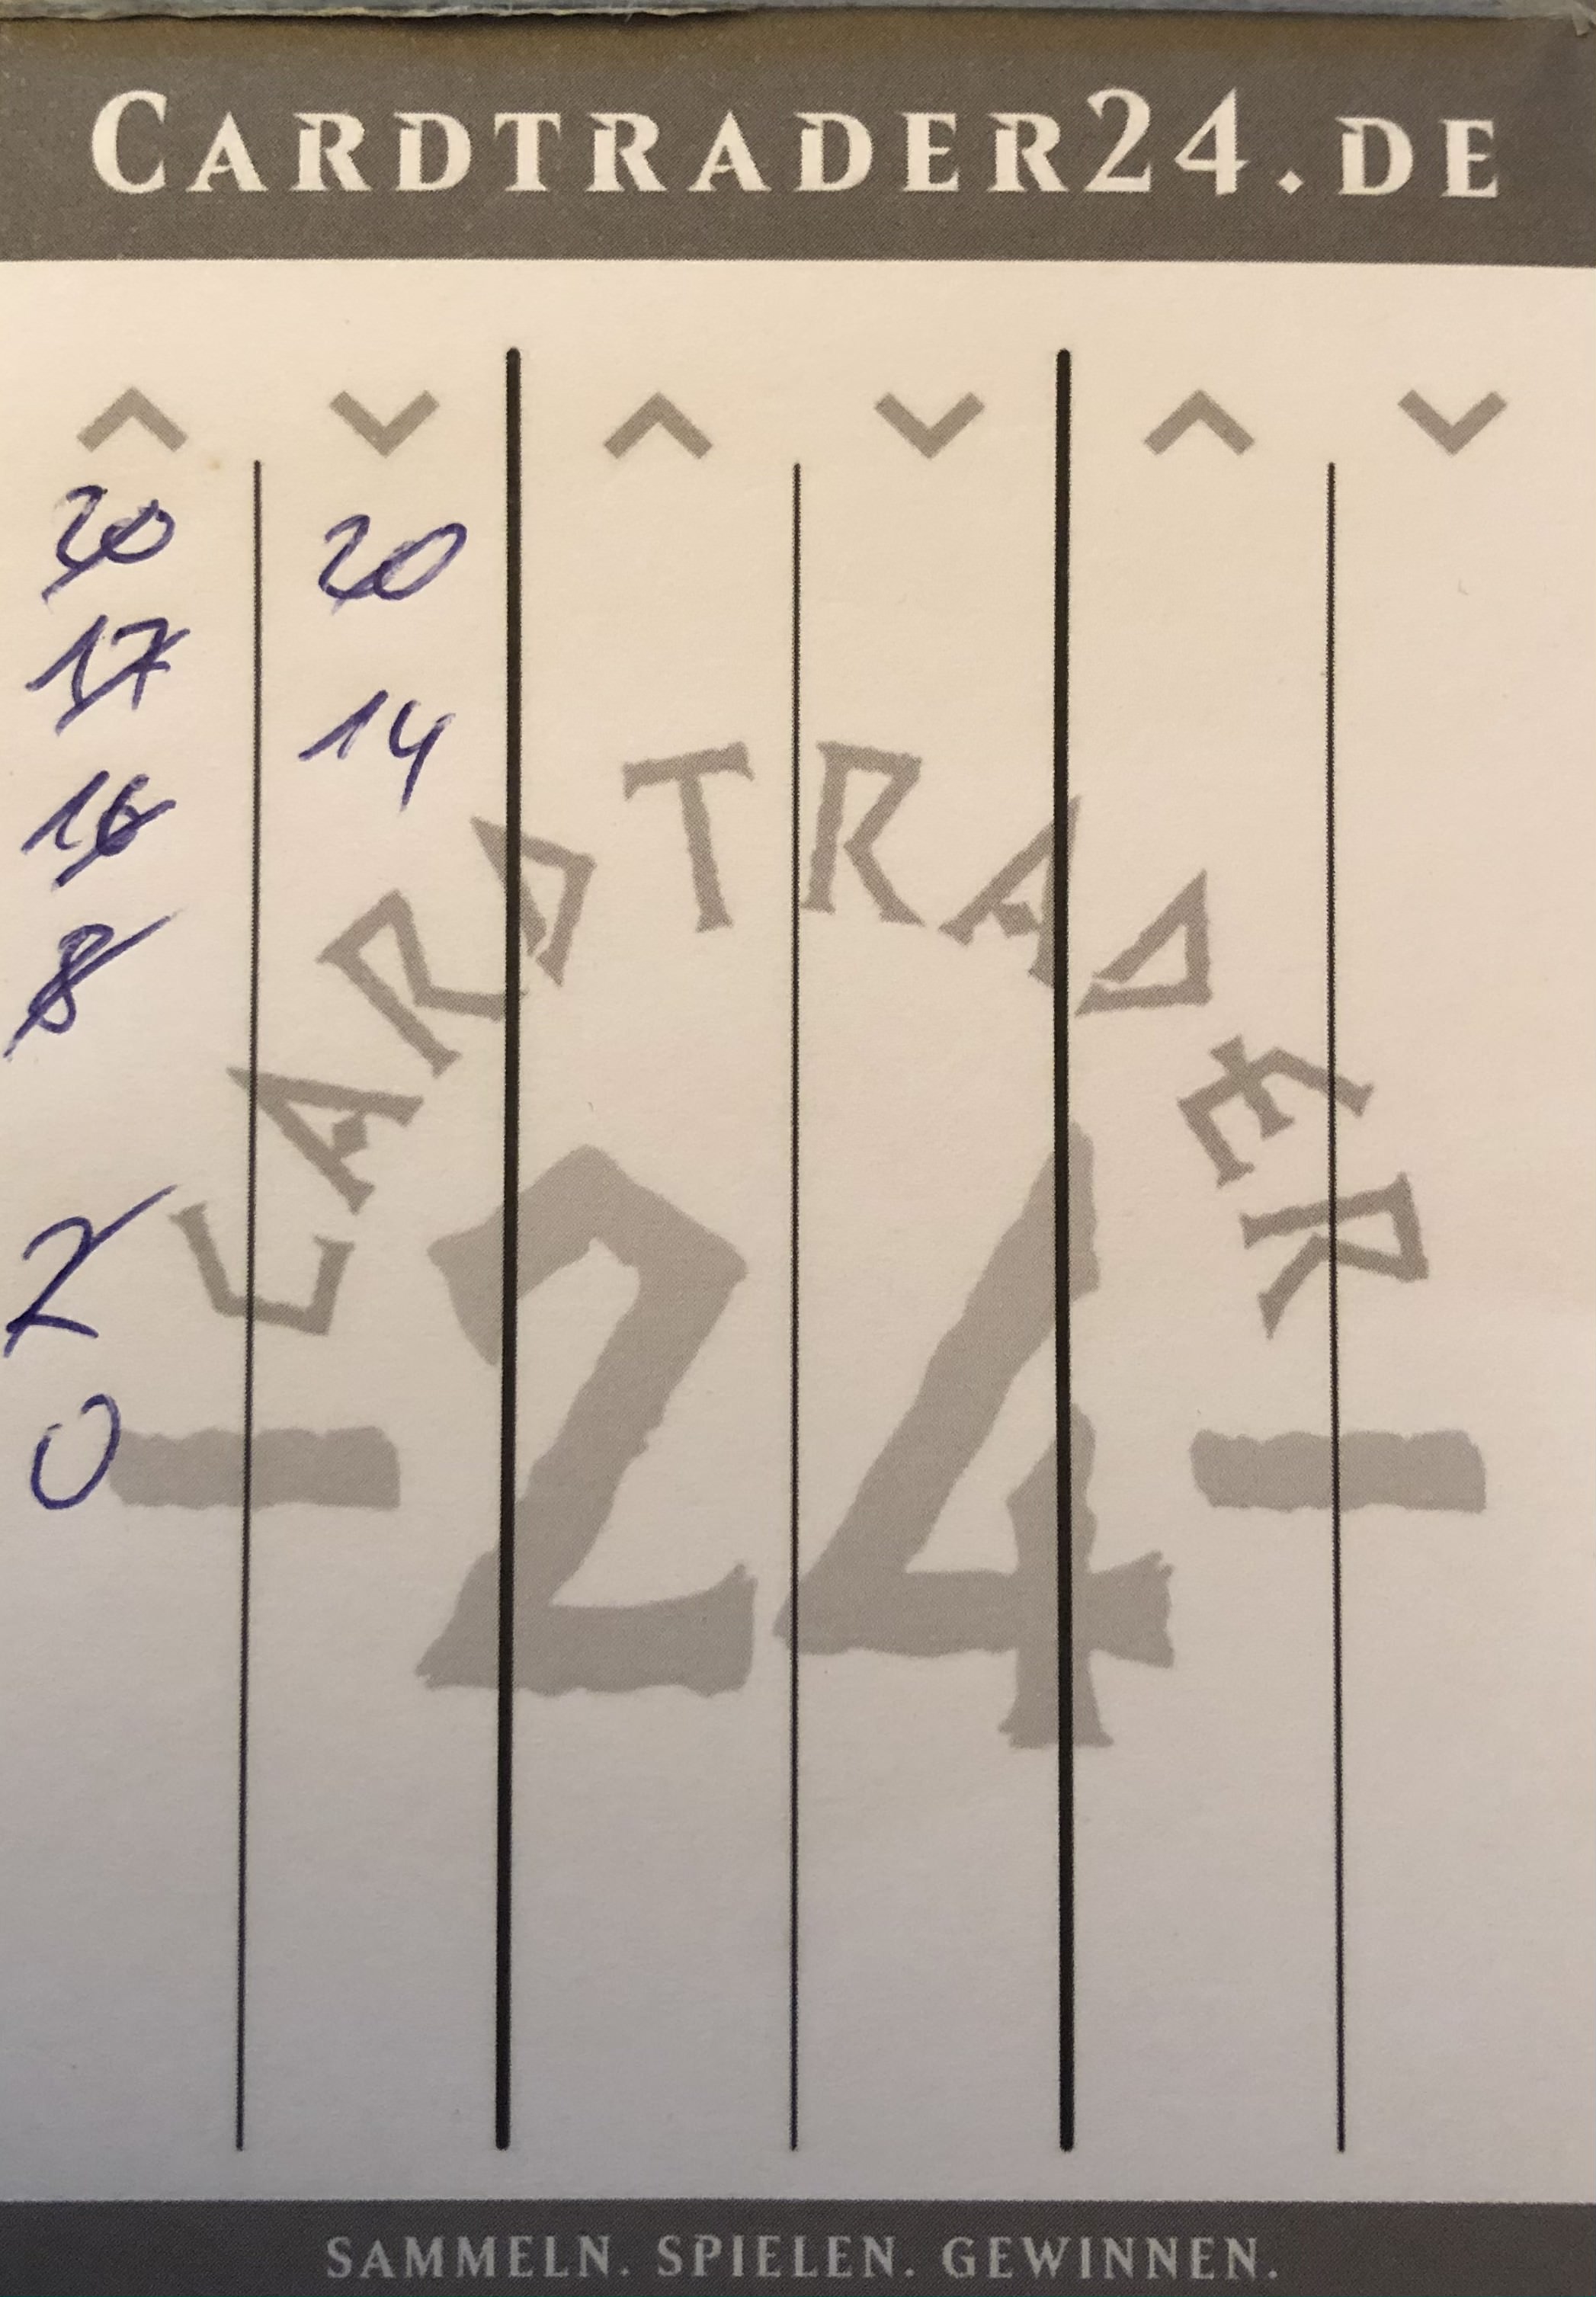 CARDTRADER24.DE
20 20
17
14
16
8
2
0
CARDTRADER
24
SAMMELN. SPIELEN. GEWINNEN.